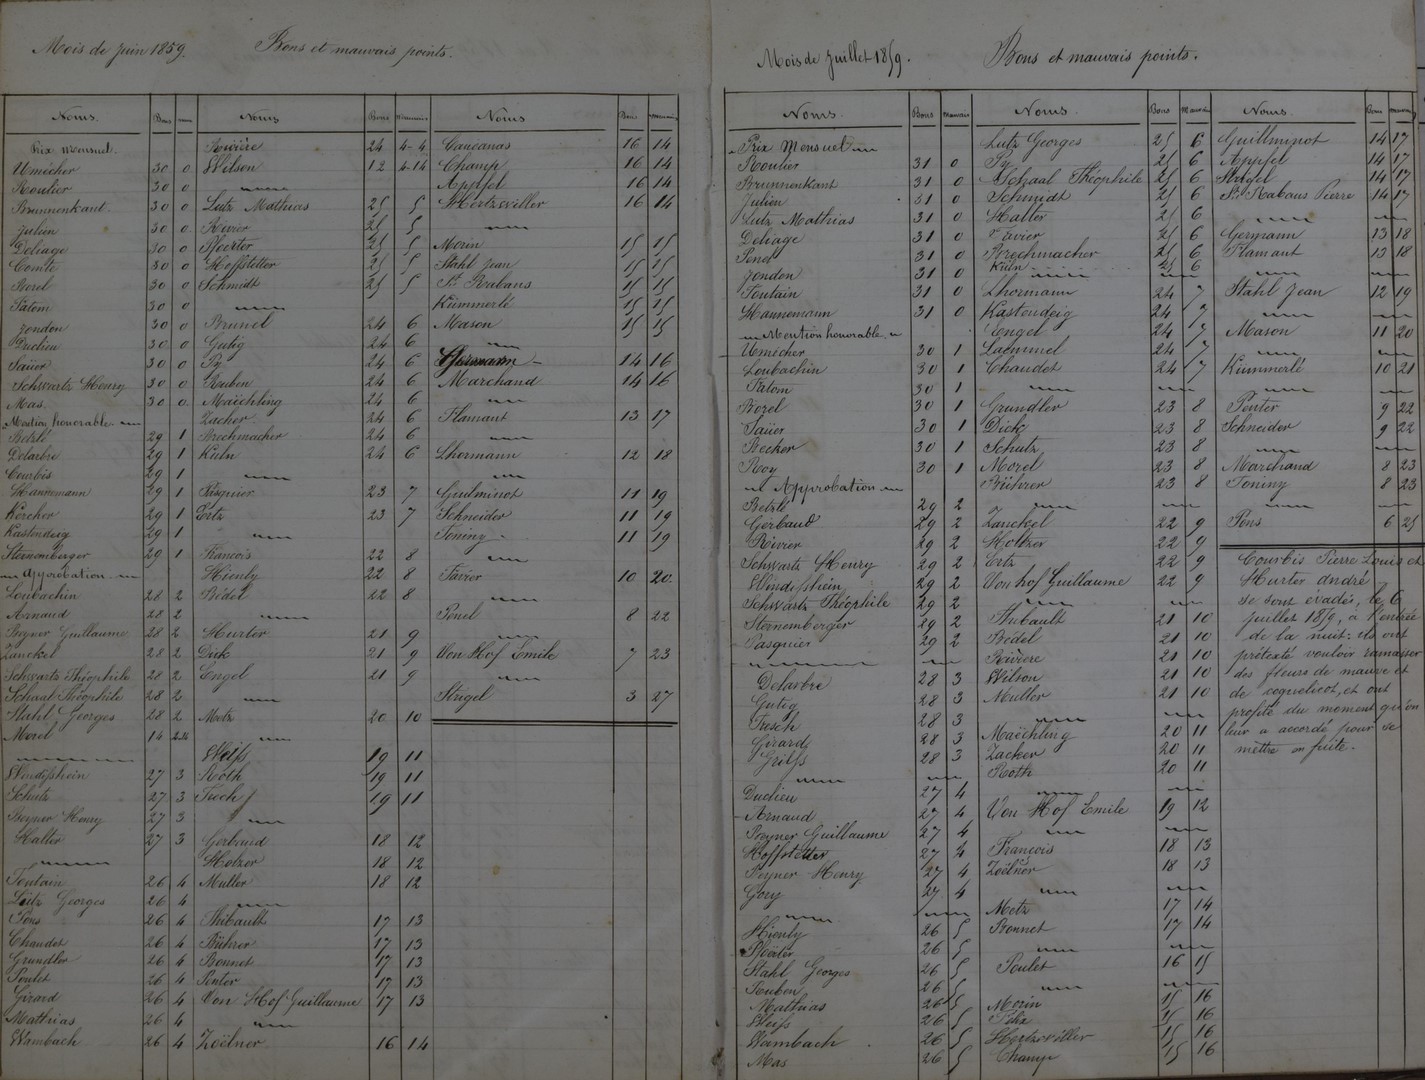 Mois de Juin 1859. Bons et mauvais points.
Noms. Bons mauv
Prix Mensuel.
Umécher 30 0
Roulier 30 0
Brunnenkant. 30 0
Julien 30 0
Deliage 30 0
Comte 30 0
Borel 30 0
Patom 30 0
Jondon 30 0
Duclieu 30 0
Saüer 30 0
Schwartz Henry 30 0
Mas. 30 0
Mention honorable.
Betzlé 29 1
Delarbre 29 1
Courbis 29 1
Hannemann 29 1
Kercher 29 1
Kastendeig 29 1
Sternemberger 29 1
Approbation
Loubachin 28 2
Arnaud 28 2
Peyner Guillaume 28 2
Zanckel 28 2
Schwartz Théophile 28 2
Schaal Théophile 28 2
Stahl Georges 28 2
Morel 14 2-2
Windisshein 27 3
Schutz 27 3
Peyner Henry 27 3
Halter 27 3
Fontain 26 4
Lutz Georges 26 4
Pons 26 4
Chaudet 26 4
Grundler 26 4
Poulet 26 4
Girard 26 4
Mathias 26 4
Wambach 26 4
Noms Bons Mauvais
Rivière 24 4-4
Wilson 12 4-14
Lutz Mathias 25 5
Rivier 25 5
Ploerter 25 5
Hoffstetter 25 5
Schmidt 25 5
Brunet 24 6
Gutig 24 6
Py 24 6
Ruben 24 6
Maëchling 24 6
Zacker 24 6
Brechmacher 24 6
Kuln 24 6
Pasquier 23 7
Ertz 23 7
François 22 8
Hienly 22 8
Bédel 22 8
Hurter 21 9
Dick 21 9
Engel 21 9
Metz 20 10
Weiss 19 11
Roth 19 11
Fisch 19 11
Gerbaud 18 12
Holzer 18 12
Muller 18 12
Thibault 17 13
Bührer 17 13
Bonnet 17 13
Penter 17 13
Von Hof Guillaume 17 13
Zoëlner 16 14
Noms Bons mauvais
Caucanas 16 14
Champ 16 14
Appfel 16 14
Hertzwiller 16 14
Morin 15 15
Stahl Jean 15 15
St. Rabaus 15 15
Kümmerlé 15 15
Mason 15 15
Germann 14 16
Marchand 14 16
Flamant 13 17
Lhormann 12 18
Guilminot 11 19
Schneider 11 19
Toniny 11 19
Favier 10 20
Penel 8 22
Von Hof Emile 7 23
Strigel 3 27
Mois de Juillet 1859. Bons et mauvais points.
Noms. Bons Mauvais
Prix Mensuel
Roulier 31 0
Brunnenkant 31 0
Julien 31 0
Lutz Mathias 31 0
Deliage 31 0
Penel 31 0
Jondon 31 0
Fontain 31 0
Hannemann 31 0
Mention honorable
Umécher 30 1
Loubachin 30 1
Patom 30 1
Borel 30 1
Saüer 30 1
Becker 30 1
Roy 30 1
Approbation
Betzlé 29 2
Gerbaud 29 2
Rivier 29 2
Schwartz Henry 29 2
Windisshein 29 2
Schwartz Théophile 29 2
Sternemberger 29 2
Pasquier 29 2
Delarbre 28 3
Gutig 28 3
Fisch 28 3
Girard 28 3
Grilss 28 3
Duclieu 27 4
Arnaud 27 4
Peyner Guillaume 27 4
Hoffstetter 27 4
Peyner Henry 27 4
Gory 27 4
Hienly 26 5
Ploërter 26 5
Stahl Georges 26 5
Ruben 26 5
Mathias 26 5
Weiss 26 5
Wambach 26 5
Mas 26 5
Noms. Bons Mauvais
Lutz Georges 25 6
Py 25 6
Schaal Théophile 25 6
Schmidt 25 6
Halter 25 6
Favier 25 6
Brechmacher 25 6
Kuln 25 6
Lhormann 24 7
Kastendeig 24 7
Engel 24 7
Laemmel 24 7
Chaudet 24 7
Grundler 23 8
Dick 23 8
Schutz 23 8
Morel 23 8
Bührer 23 8
Zanckel 22 9
Holtzer 22 9
Ertz 22 9
Von hof Guillaume 22 9
Thibault 21 10
Bédel 21 10
Rivière 21 10
Wilson 21 10
Muller 21 10
Maëchling 20 11
Zacker 20 11
Roth 20 11
Von Hof Emile 19 12
François 18 13
Zoëlner 18 13
Metz 17 14
Bonnet 17 14
Poulet 16 15
Morin 15 16
Félix 15 16
Hertzwiller 15 16
Champ 15 16
Noms. Bons mauvais
Guillminot 14 17
Appfel 14 17
Strigel 14 17
St. Rabaus Pierre 14 17
Germann 13 18
Flamant 13 18
Stahl Jean 12 19
Mason 11 20
Kümmerlé 10 21
Penter 9 22
Schneider 9 22
Marchand 8 23
Toniny 8 23
Pons 6 25
Courbis Pierre Louis et
Hurter André
se sont évadés, le 6
juillet 1859, à l'entrée
de la nuit: ils ont
prétexté vouloir ramasser
des fleurs de mauve et
de coquelicot, et ont
profité du moment qu'on
leur a accordé pour se
mettre en fuite.